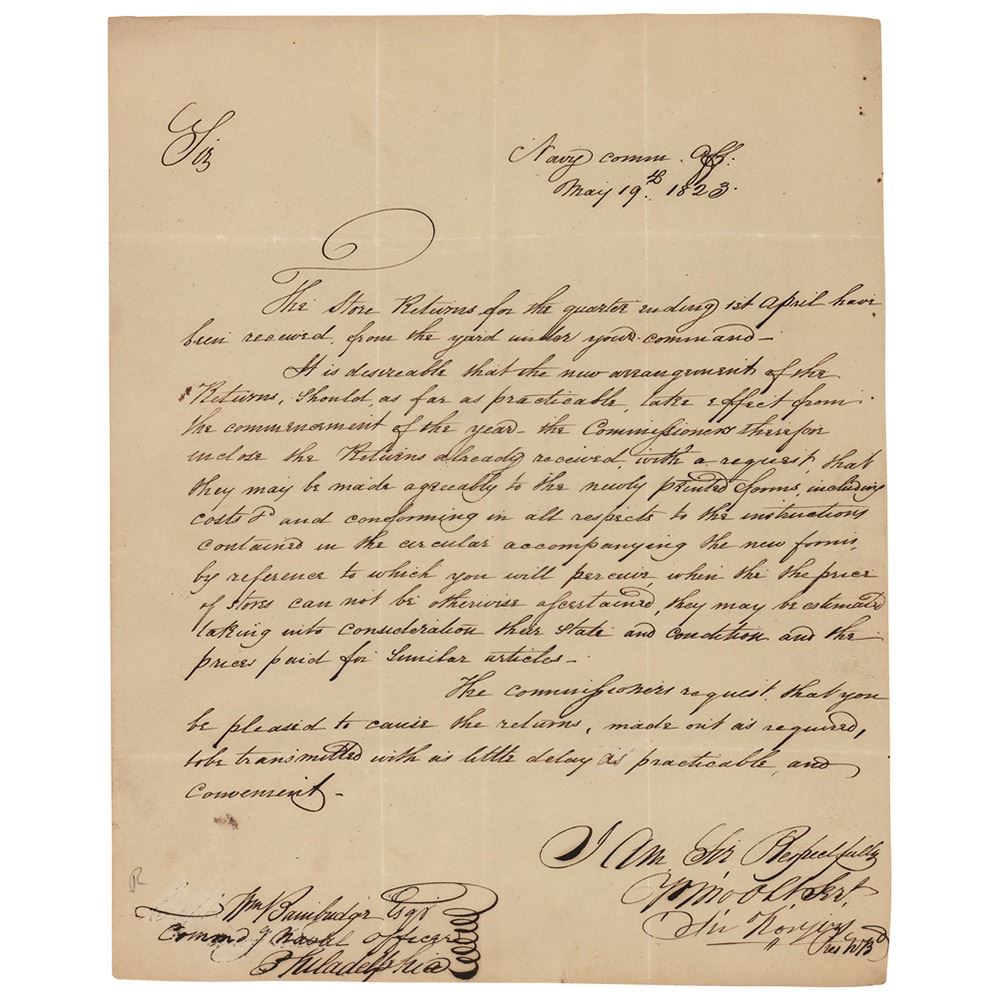 Sir
Navy comm. Off:
May 19th. 1823.
The Store Returns for the quarter ending 1st April have
been received, from the yard under your command—
It is desireable that the new arrangement of the
Returns, Should, as far as practicable, take effect from
the commencement of the year— the Commissioners therefor
inclose the Returns already received, with a request, that
they may be made agreeably to the newly printed forms, including
costs & and conforming in all respects to the instructions
contained in the circular accompanying the new forms,
by reference to which you will perceive, when the the price
of stores can not be otherwise ascertained, they may be estimated
taking into consideration their State and condition and the
prices paid for Similar articles—
The commissioners request that you
be pleased to cause the returns, made out as required,
to be transmitted with as little delay as practicable, and
Convenient—
I Am Sir Respectfully
Yr. mo Obt Sert
Jn Rodgers
Pres N Bd
R
Wm Bainbridge Esqr
Command g Naval Officer
Philadelphia